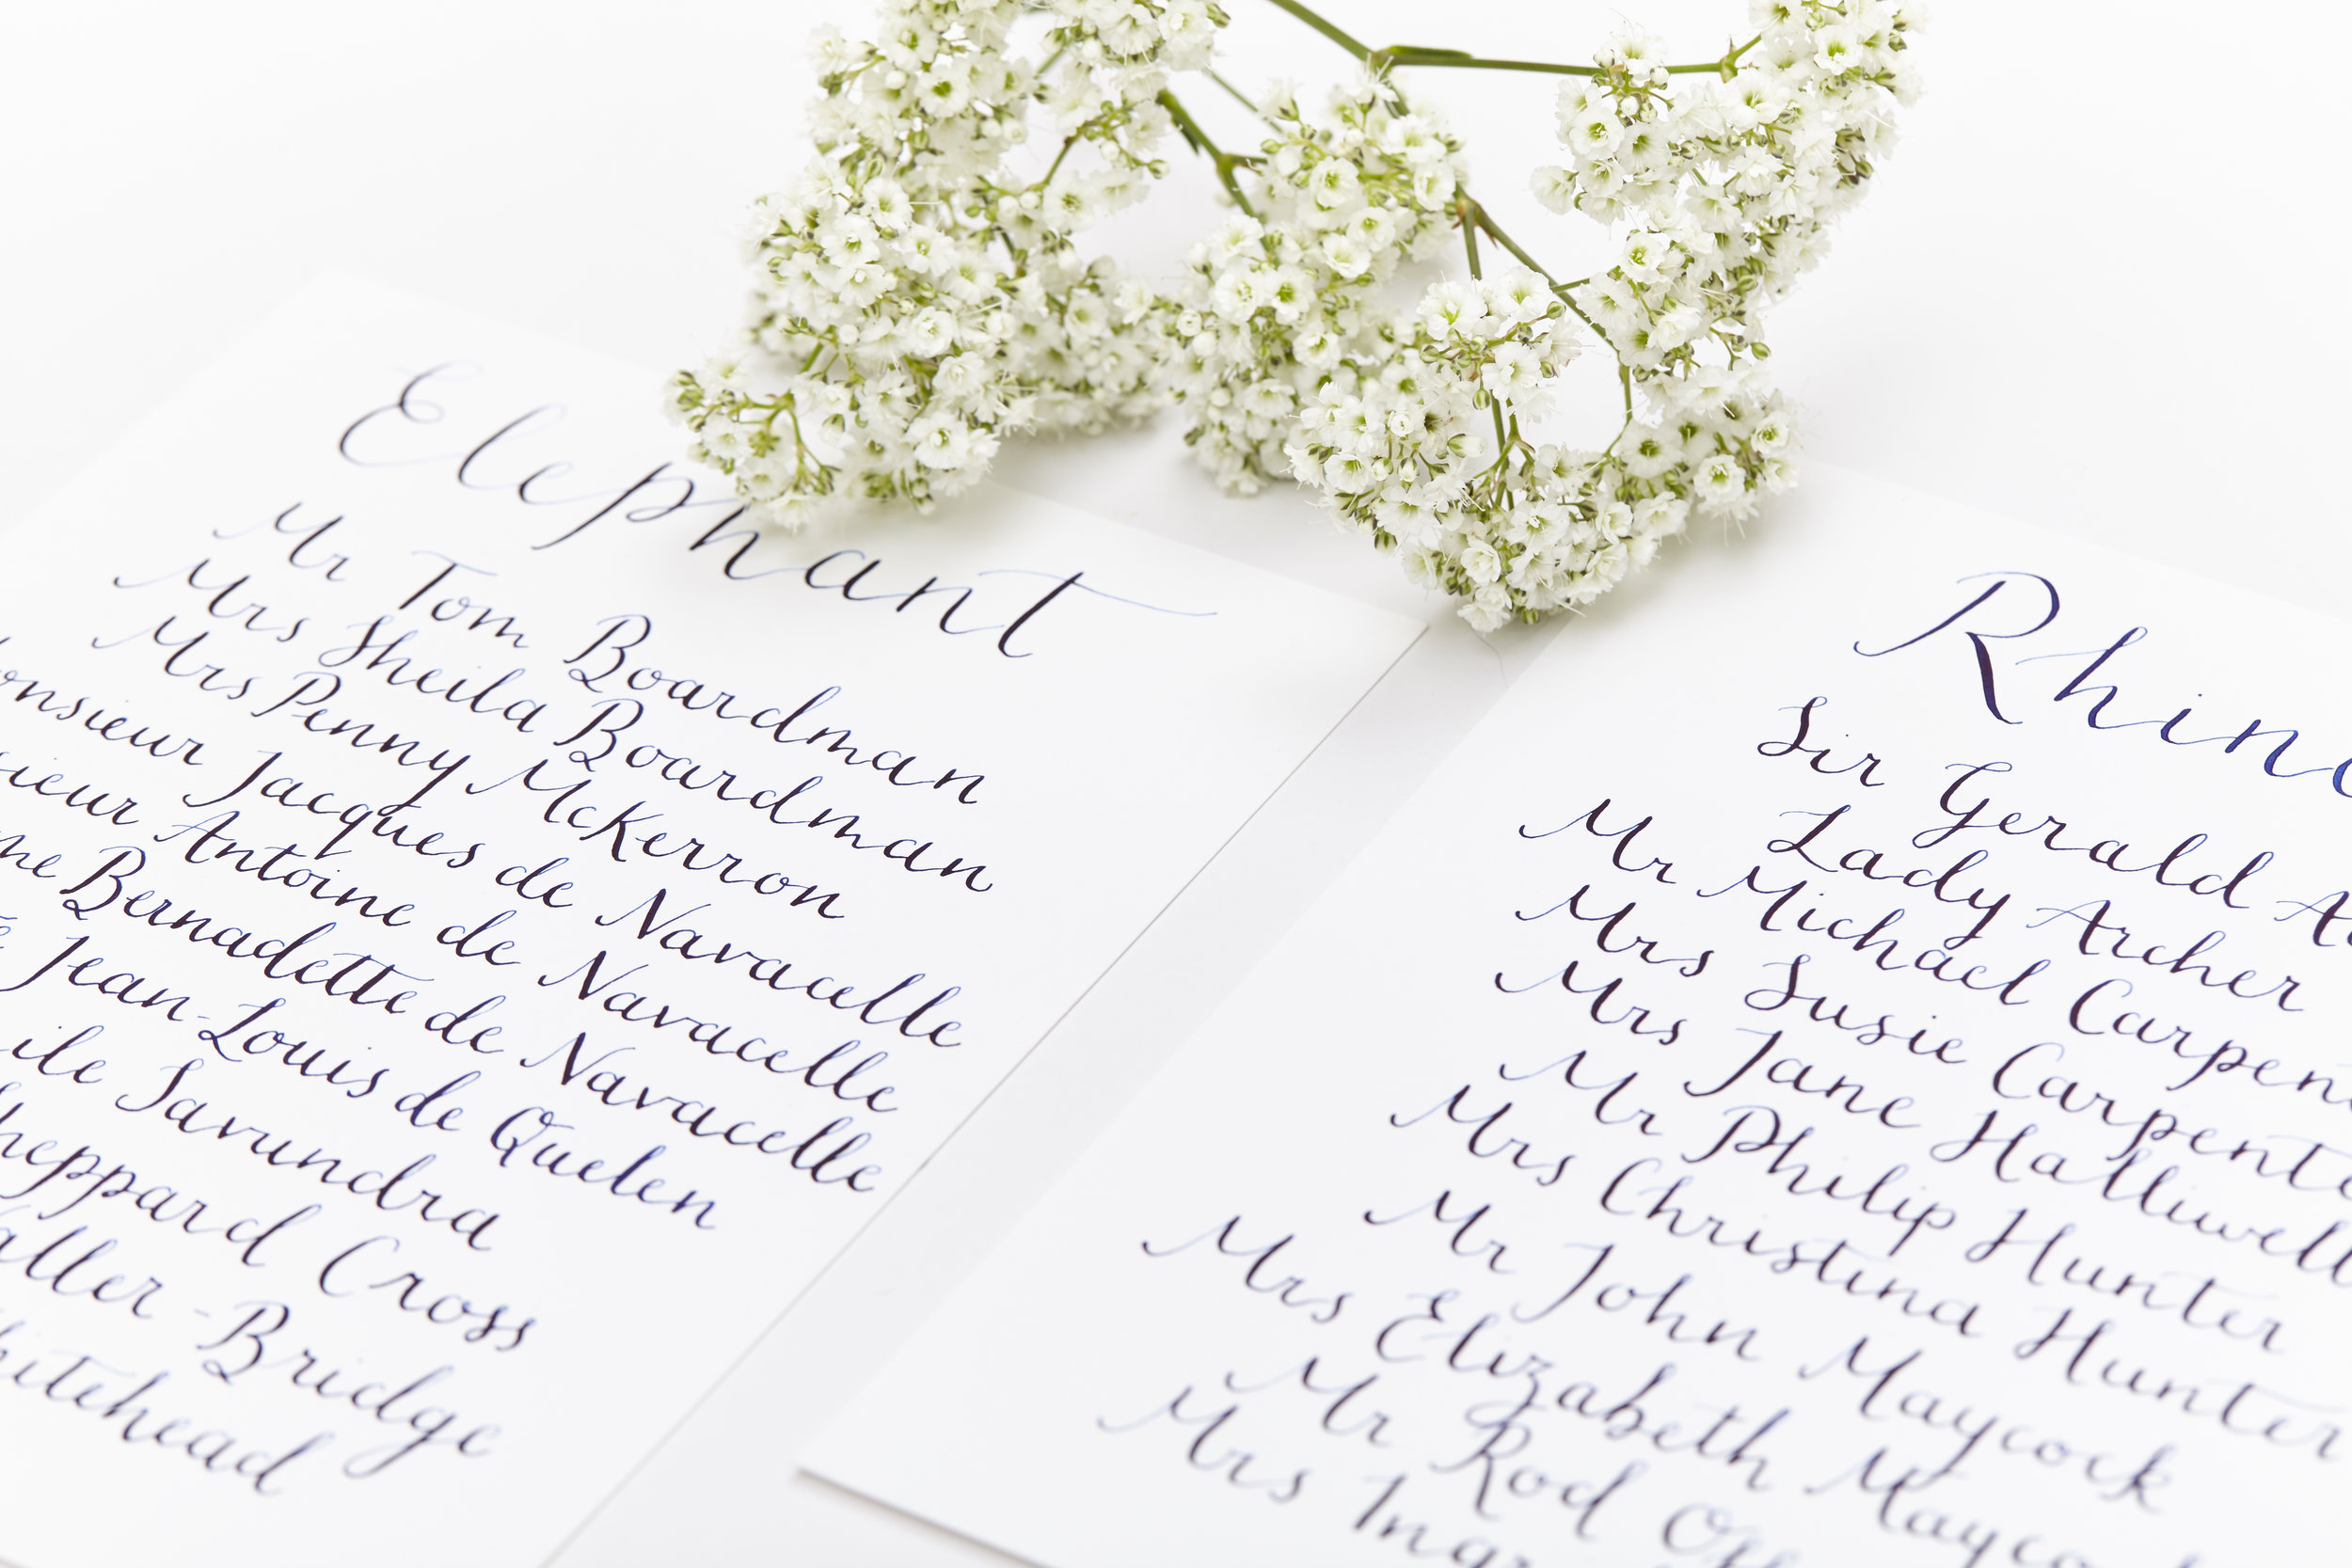 Elephant
Mr Tom Boardman
Mrs Sheila Boardman
Mrs Penny McKerron
onsieur Jacques de Navacelle
sieur Antoine de Navacelle
me Bernadette de Navacelle
Jean-Louis de Quelen
ile Savundra
heppard Cross
aller-Bridge
hitehead
Rhino
Sir Gerald A
Lady Archer
Mr Michael Carpen
Mrs Susie Carpente
Mrs Jane Halliwell
Mr Philip Hunter
Mrs Christina Hunter
Mr John Maycock
Mrs Elizabeth Mayco
Mr Rod
Mrs